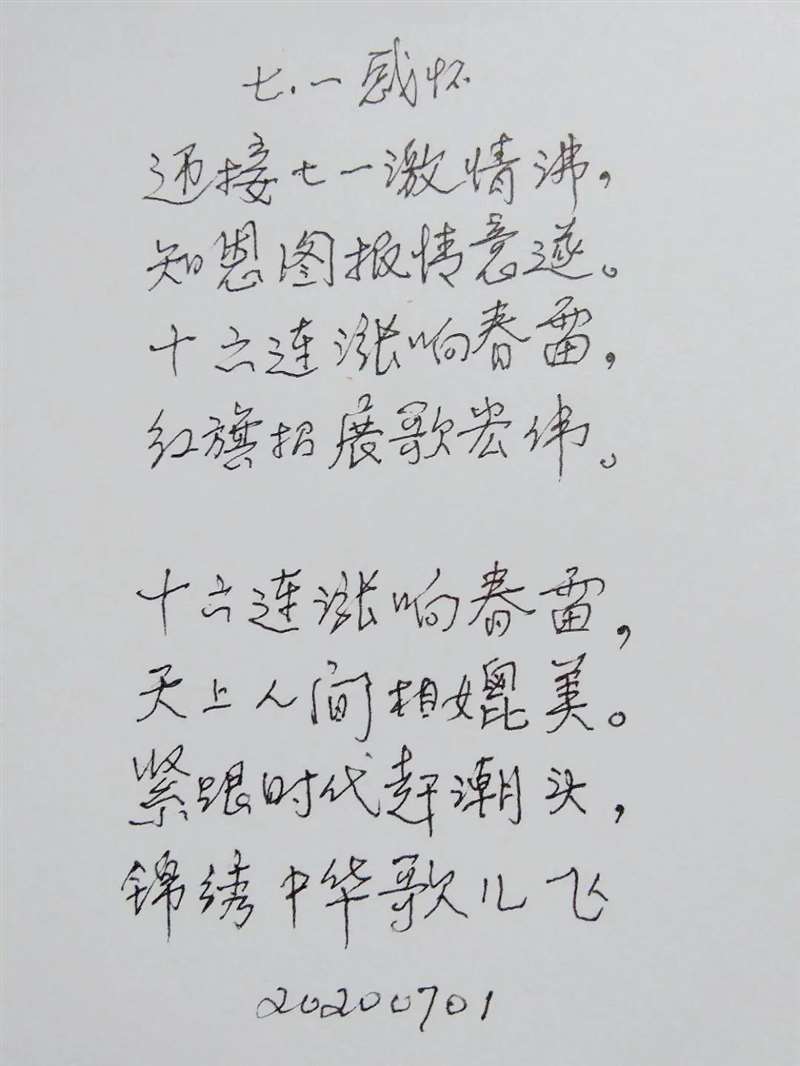 七.一感怀
迎接七一激情沸，
知恩图报情意邃。
十六连涨响春雷，
红旗招展歌宏伟。
十六连涨响春雷，
天上人间相媲美。
紧跟时代赶潮头，
锦绣中华歌儿飞
20200701